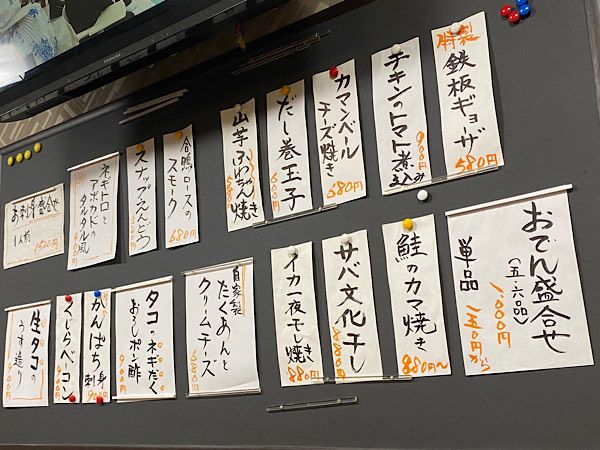 TOSHIBA
特製
鉄板ギョーザ
580円
チキンのトマト煮込み
900円
カマンベール
チーズ焼き
680円
だし巻玉子
山芋ふわちゃん焼き
合鴨ロースの
スモーク
680円
スナップえんどう
ネギトロと
アボカドの
タルタル風
900円
お刺身盛合せ
1人前
1500円
おでん盛合せ
(五・六品)
1000円
単品
150円から
鮭のカマ焼き
880円〜
サバ文化干し
イカ一夜干し焼き
880円
自家製
たくあんと
クリームチーズ
タコ・ネギだく
おろしポン酢
900円
かんぱち刺身
900円
くじらベーコン
900円
生タコの
うす造り
900円